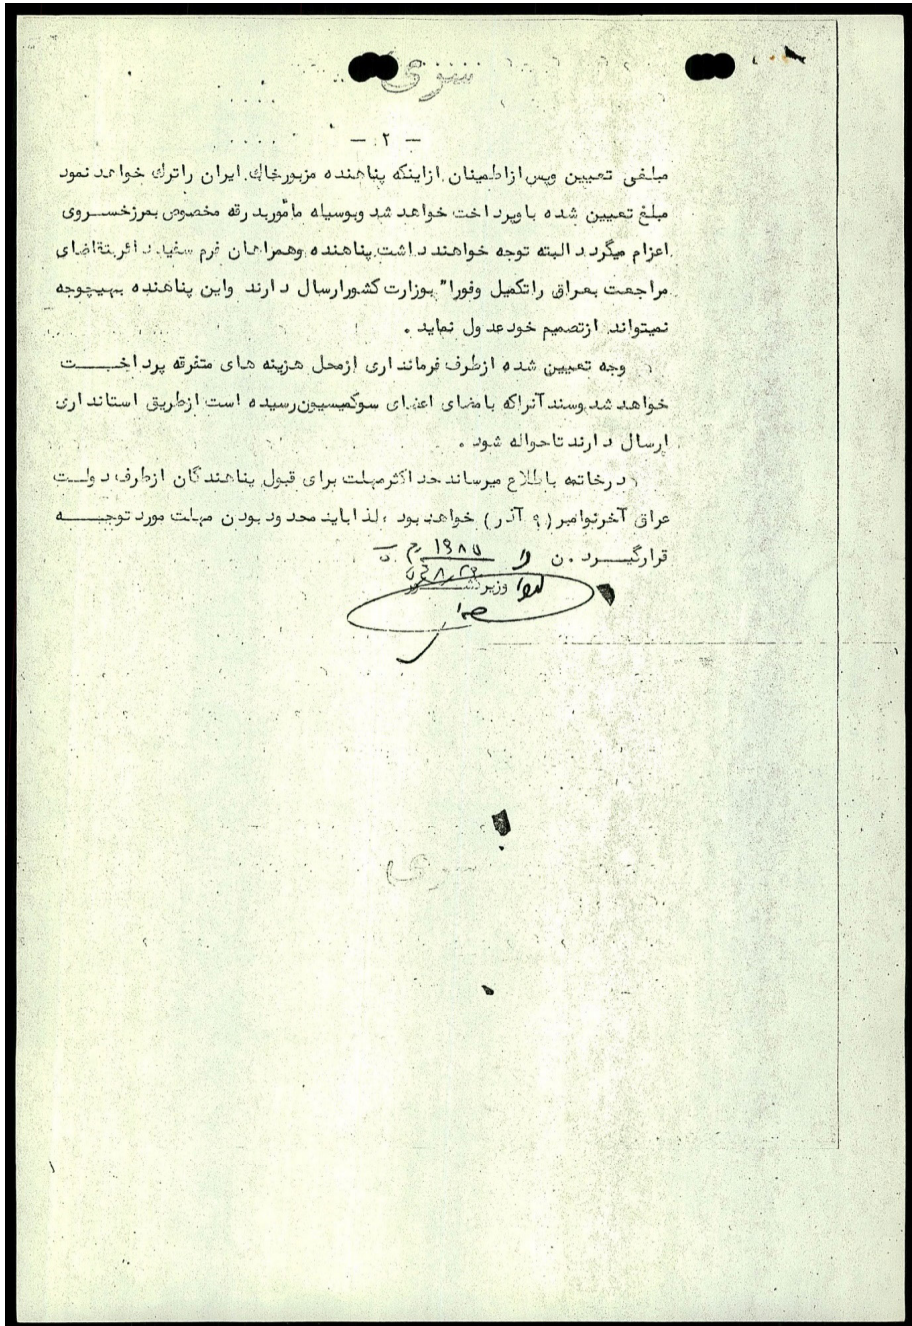 سری
— ۲ —
مبلغی تعیین وپس ازاطمینان ازاینکه پناهنده مزبورخاك ایران راترك خواهد نمود
مبلغ تعیین شده باوپرداخت خواهد شد وبوسیله مأموربدرقه مخصوص بمرزخسـروی
اعزام میگردد البته توجه خواهند داشت پناهنده وهمراهان فرم سفید دائربتقاضای
مراجعت بعراق راتکمیل وفورا" بوزارت کشورارسال دارند واین پناهنده بهیچوجه
نمیتواند ازتصمیم خودعدول نماید .
وجه تعیین شده ازطرف فرمانداری ازمحل هزینه های متفرقه پرداخـــت
خواهد شد وسند آنراکه بامضای اعضای سوکمیسیون رسیده است ازطریق استانداری
ارسال دارند تاحواله شود .
درخاتمه باطلاع میرساند حداکثرمهلت برای قبول پناهندگان ازطرف دولـت
عراق آخرنوامبر (۹ آذر) خواهد بود ، لذا باید محدود بودن مهلت مورد توجـــه
قرارگیـــرد . ن ۱۹۸۵
وزیرکشـــور
سری